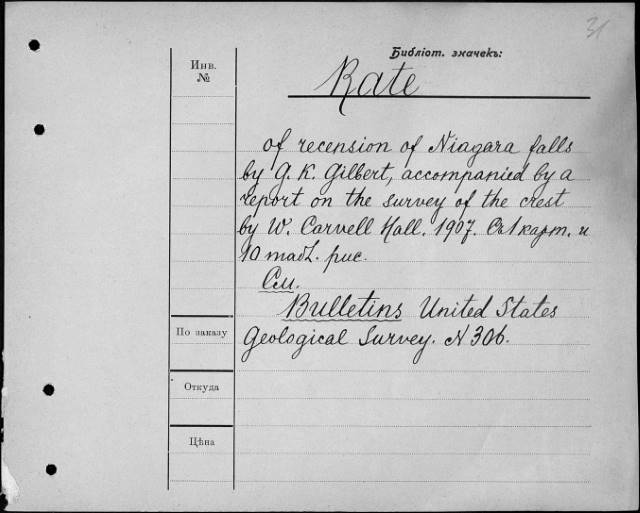 31
Библіот. значекъ:
Инв.
№
Rate
of recension of Niagara falls
by G. K. Gilbert, accompanied by a
report on the survey of the crest
by W. Carvell Hall. 1907. Съ 1 карт. и
10 табл. рис.
См.
Bulletins United States
По заказу
Geological Survey. N 306.
Откуда
Цѣна